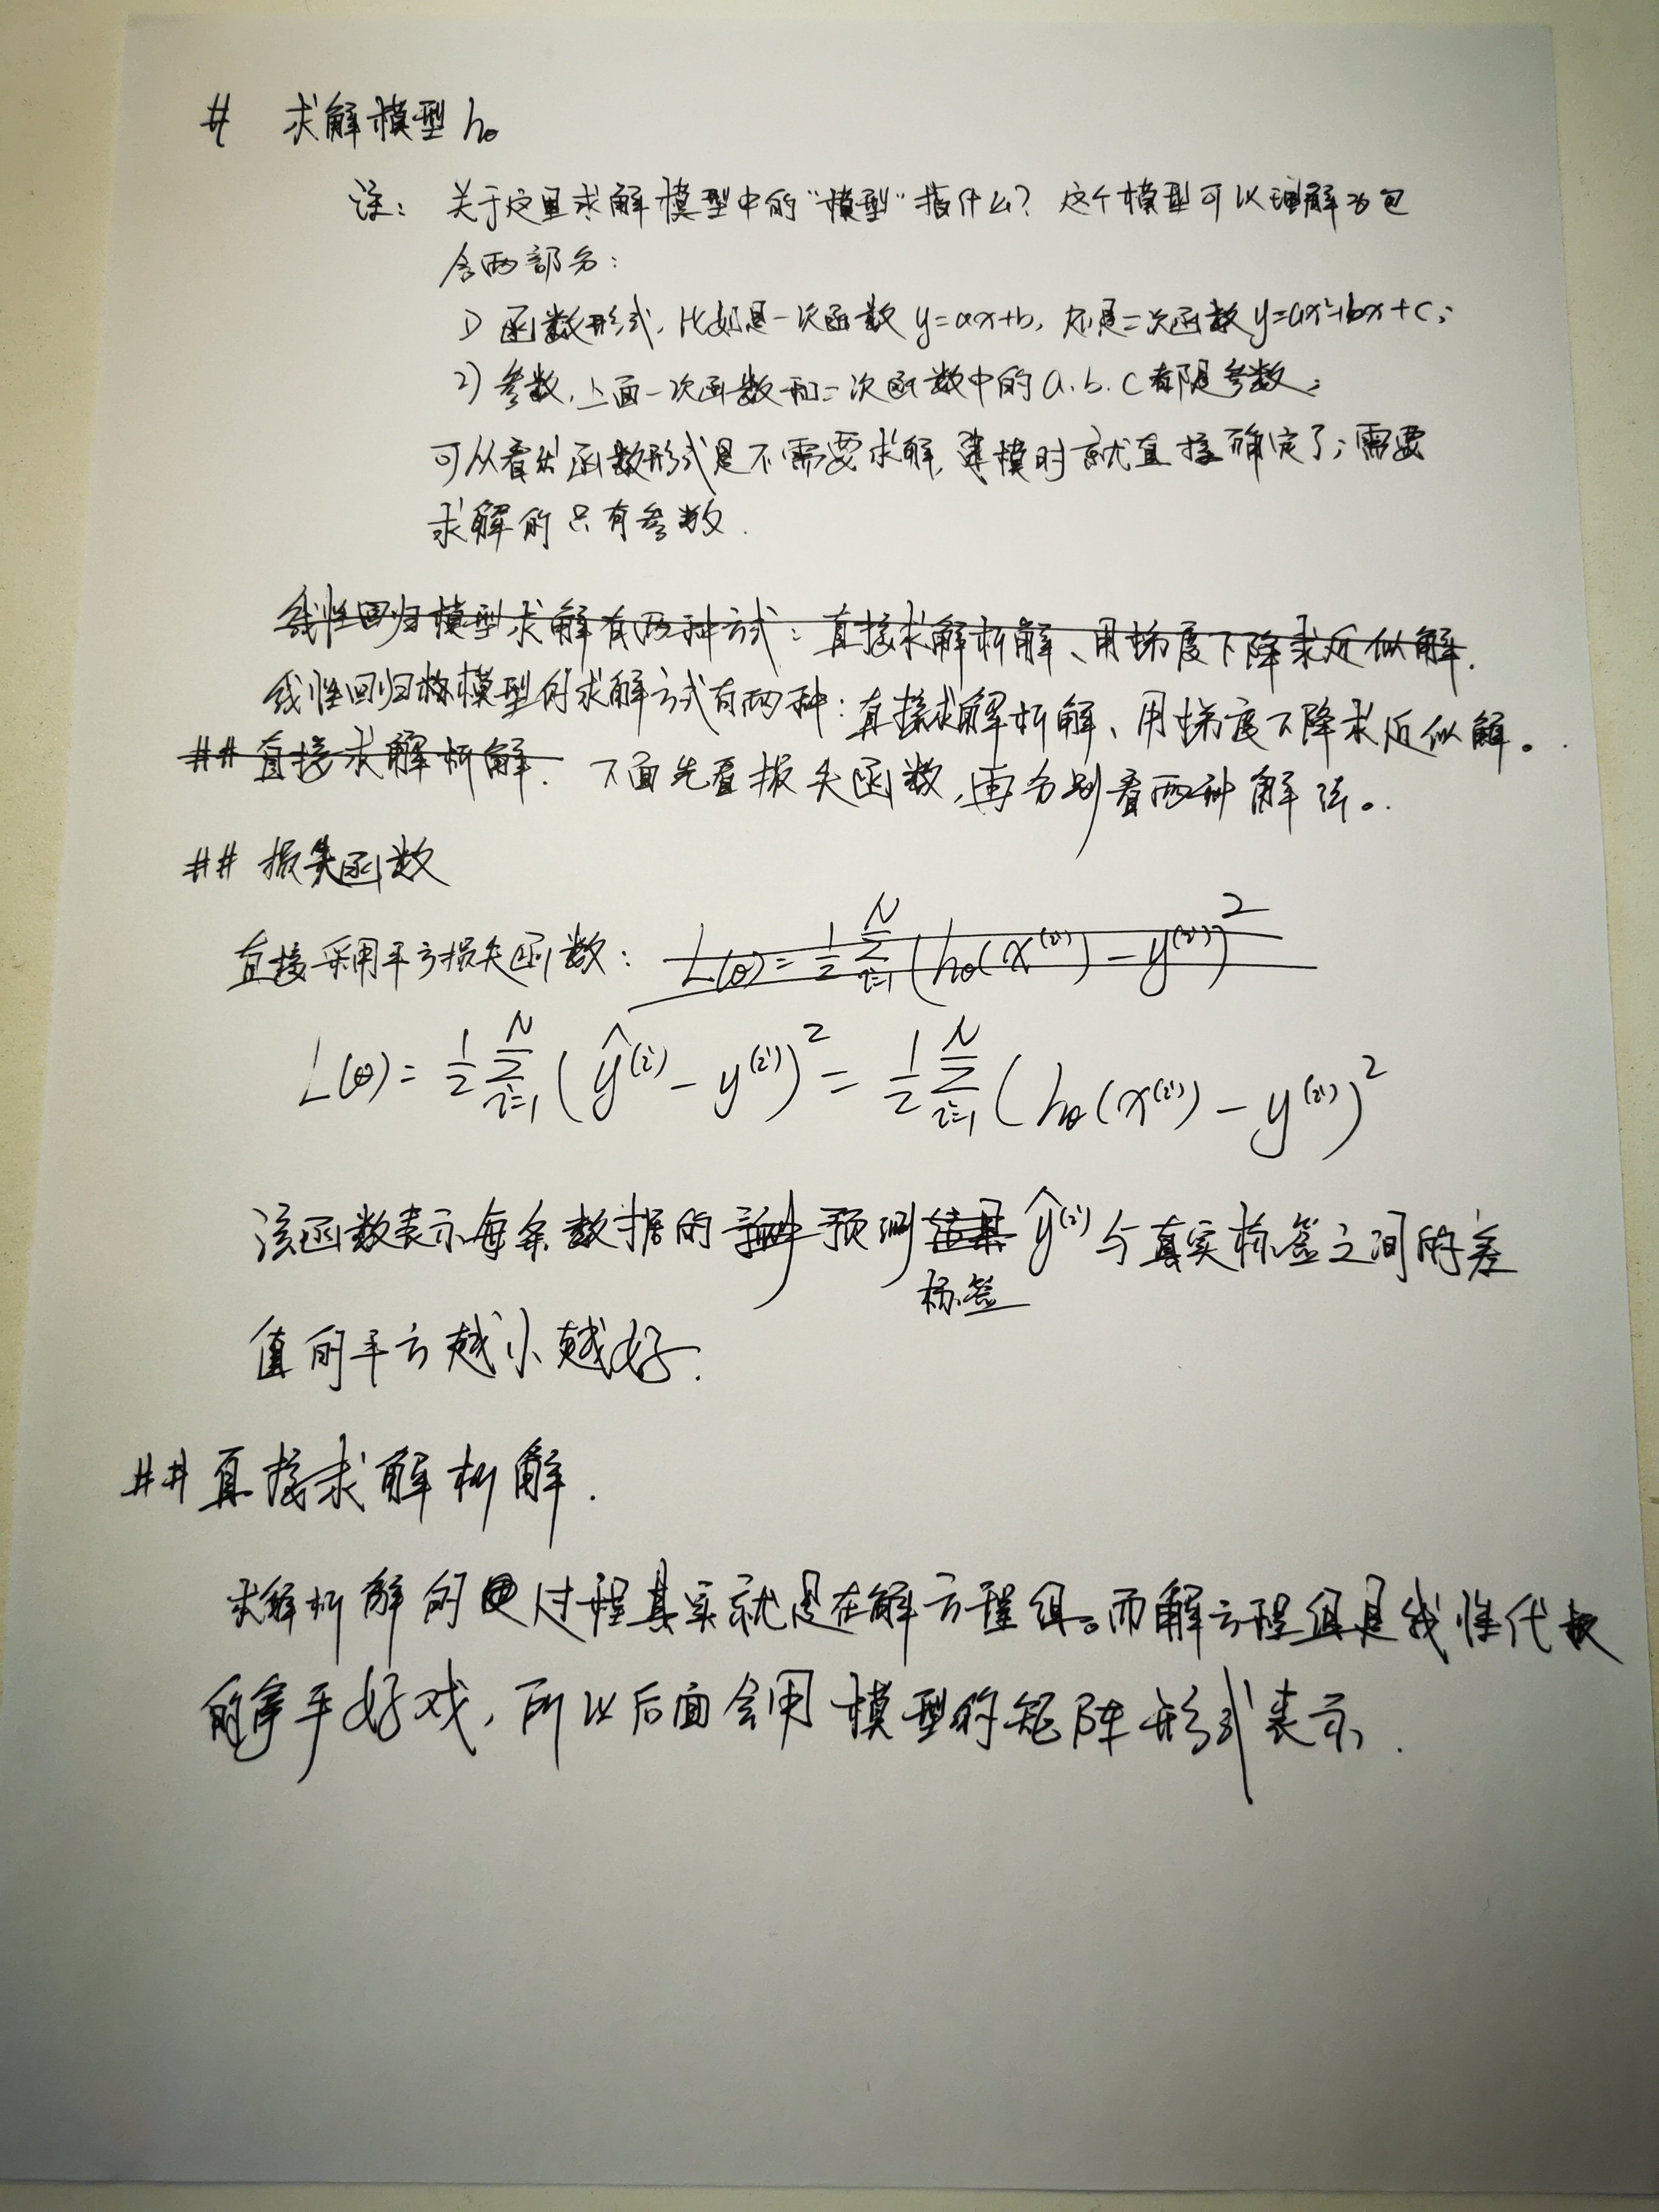 # 求解模型 hθ
注: 关于这里求解模型中的“模型”指什么? 这个模型可以理解为包
含两部分:
1) 函数形式, 比如是一次函数 y=ax+b, 还是二次函数 y=ax²+bx+c;
2) 参数, 上面一次函数和二次函数中的 a. b. c 都是参数;
可以看出函数形式是不需要求解, 建模时就直接确定了; 需要
求解的只有参数.
线性回归模型求解有两种方式: 直接求解析解、用梯度下降求近似解.
线性回归模型的求解方式有两种: 直接求解析解、用梯度下降求近似解。
## 直接求解析解. 下面先看损失函数, 再分别看两种解法。
## 损失函数
直接采用平方损失函数: L(θ) = 1/2 Σ_{i=1}^{N} (hθ(x^(i)) - y^(i))²
L(θ) = 1/2 Σ_{i=1}^{N} (ŷ^(i) - y^(i))² = 1/2 Σ_{i=1}^{N} (hθ(x^(i)) - y^(i))²
该函数表示每条数据的预测结果 ŷ^(i) 与真实标签之间的差
标签
值的平方越小越好.
## 直接求解析解.
求解析解的过程其实就是在解方程组。而解方程组是线性代数
的拿手好戏, 所以后面会用模型的矩阵形式表示.